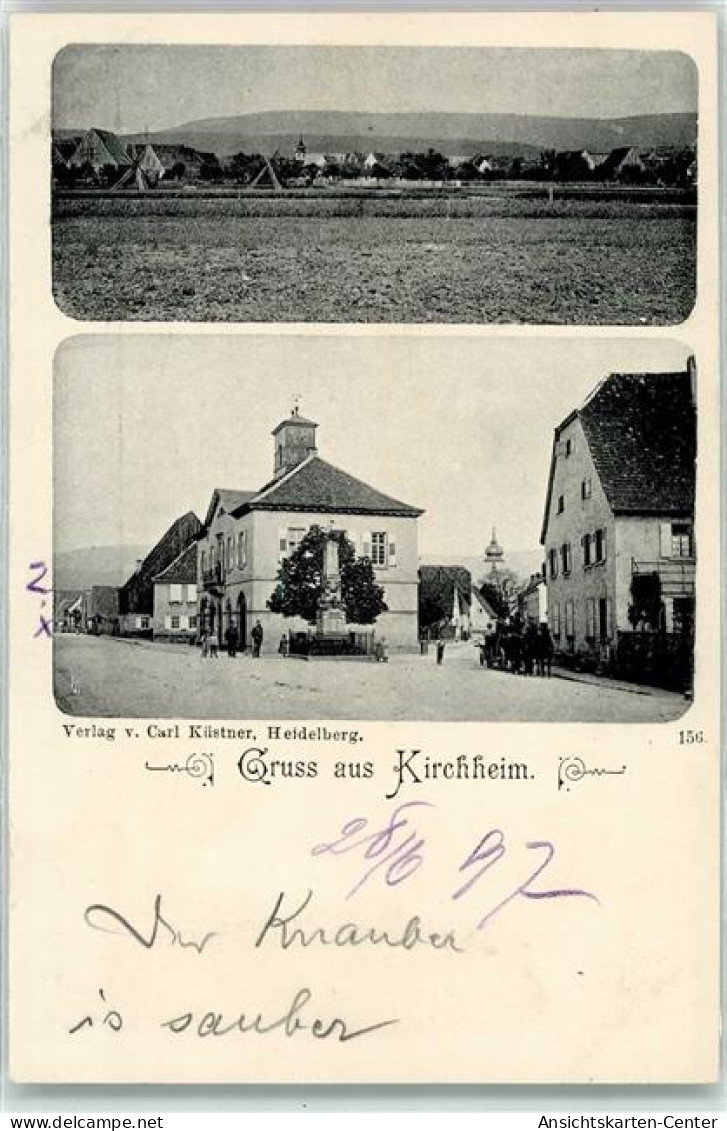 2.
x
Verlag v. Carl Küstner, Heidelberg.
156.
Gruss aus Kirchheim.
28/6 97
Der Knauber
is sauber
www.oldthing.de
Ansichtskarten-Center